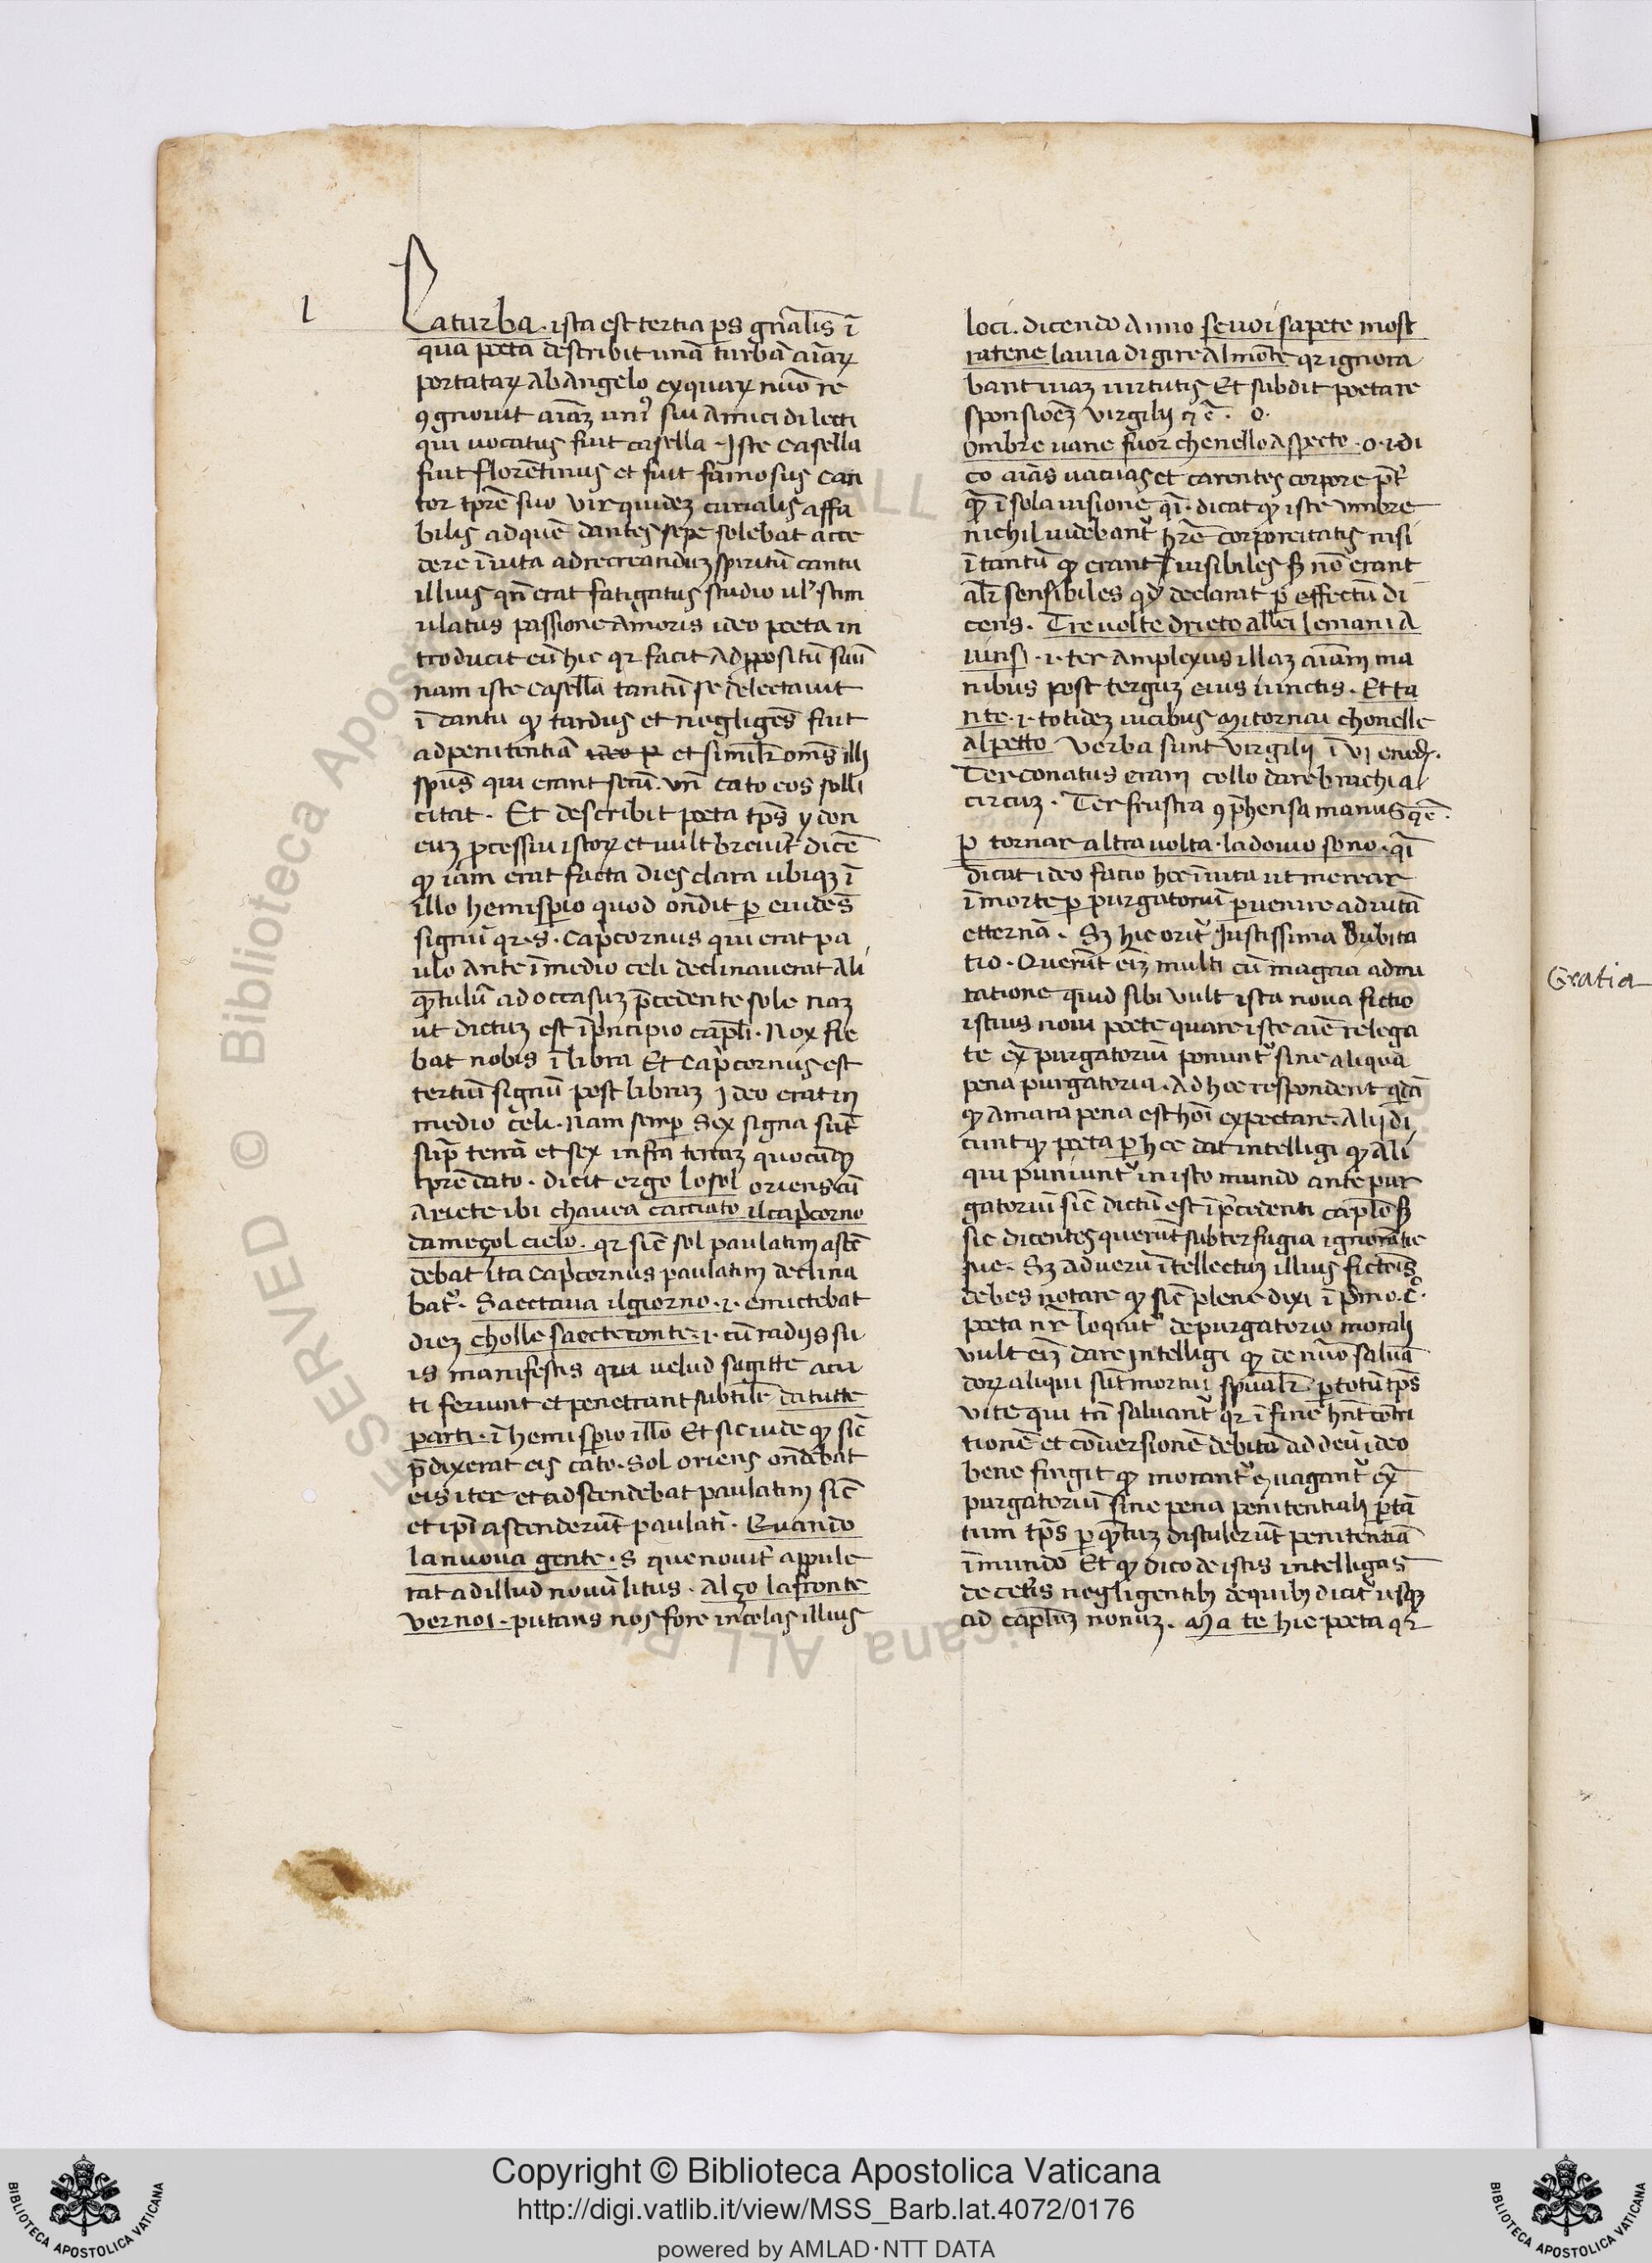 l
Laturba. ista est tertia ps gñalis ĩ
qua poeta describit unã turbã aĩaꝝ
portataꝝ Ab Angelo ex quaꝝ nũo re
ꝯgnouit aĩaz uniꝰ sui Amici dilecti
qui uocatus fuit casella. Iste Casella
fuit florẽtinus et fuit famosus can
tor tp̃re suo vir quidez curialis affa
bilis ad quẽ dantes sepe solebat acce
dere ĩ uita ad recreanduz spiritũ cantu
illius qñ erat fatigatus studio ul̛ stim
ulatus passione Amoris ideo poeta in
troducit eũ hic qꝛ facit Ad ꝓpositũ suũ
nam iste casella tantũ se delectauit
ĩ cantu ꝙ tardus et negligẽs fuit
ad penitentiã et simil̛r om̃s illi
sp̃us qui erant secũ. vñ cato eos solli
citat. Et describit poeta tp̃s ydon
euz ꝓcessui istoꝝ et uult breuit̛ dicẽ
ꝙ iam erat facta dies clara ubiqꝫ ĩ
illo hemisꝑio quod oñdit ꝑ euidẽs
signũ qꝛ. s. Cap̛cornus qui erat pa
ulo Ante ĩ medio celi declinauerat Ali
qͣntulũ ad occasuz p̃cedente sole naz
ut dictuz est ĩ p̛ncipio capl̃i. Nox fie
bat nobis ĩ libra Et Cap̛cornus est
tertiũ signũ post libraz Ideo erat in
medio celi. Nam semꝑ Sex signa sũt
sup̃ terrã et sex infra terraz quocũqꝫ
tp̃re dato. dicit ergo lo sol oriens cũ
Ariete ibi chauea cacciato il cap̛corno
da meçol cielo. qꝛ sic̃ sol paulatim ascẽ
debat ita Cap̛cornus paulatim declina
bat̛. Saectaua il giorno. i. emictebat
diez cholle saecte conte. i. cũ radijs su
is manifestis qui uelud sagitte acu
ti feriunt et penetrant subtil̛r da tutte
parti. ĩ hemisꝑio illo Et sic uide ꝙ sic̃
p̃dixerat eis cato. Sol oriens oñdebat
eis iter et adscendebat paulatim sic̃
et ip̃i ascenderũt paulatĩ. Quando
la nuoua gente. S que nouit̛ appule
rat ad illud nouũ litus. Alço la fronte
ver noi. putans nos fore incolas illius
loci. dicendo Anno se uoi sapete most
ratene la uia di gire Al mõte qꝛ ignora
bant uiaz uirtutis Et subdit poeta re
sponsioẽz virgilij ⁊ c̃. O.
Ombre uane fuor che nello Aspecto. O. i. di
co aĩas uacuas et carentes corpore p̃t̛
qͣꝫ ĩ sola uisione qͣi. dicat ꝙ iste umbre
nichil uidebant̛ hr̃e corporeitatis nisi
ĩ tantũ ꝙ erant uisibiles sꝫ nõ erant
al̛r sensibiles qd̛ declarat ꝑ effectũ di
cens. Tre uolte drieto allei le mani A
uinsi. i. ter Amplexus illaz aĩam ma
nibus post terguz eius iunctis. Et ta
nte. i. totidez uicibus mi tornai chonelle
Al petto verba sunt virgilij ĩ vj eneid̛.
Ter conatus eram collo dare brachia
circuz. Ter frustra ꝯp̃hensa manus ⁊c̃.
ꝑ tornar altra uolta. la douio sono. qͣi
dicat ideo facio hec ĩ uita ut merear
ĩ morte ꝑ purgatoriũ ꝑuenire ad uitã
etternã. Sꝫ hic orit̛ Iustissima Dubita
tio. Querũt eĩz multi cũ magna admi
ratione quid sibi vult ista noua fictio
istius noui poete quare iste aĩe relega
te ex̃ purgatoriũ ponunt̛ sine aliqua
pena purgatoria. Ad hec respondent qͥdã
ꝙ Amara pena est hoĩ expectare. Alij di
cunt ꝙ poeta ꝑ hec dat intelligi ꝙ Ali
qui puniunt̛ in isto mundo ante pur
gatoriũ sic̃ dictũ est ĩ p̛cedenti capl̃o Sꝫ
sic dicentes querũt subterfugia ignorãtie
sue. Sꝫ ad uerũ ĩtellectuz illius fictõis
debes notare ꝙ sic̃ plene dixi ĩ p̛mo. c̛.
poeta nr̃ loquit̛ de purgatorio morali
vult eĩz dare Intelligi ꝙ de nũo saluã
doꝝ aliqui sũt mortui sp̃ual̛r ꝑ totũ tp̃s
vite qui tñ saluant̛ qꝛ ĩ fine hñt cõtri
tionẽ et conuersionẽ debitã ad deũ ideo
bene fingit ꝙ morant̛ ⁊ uagant̛ ex̃
purgatoriũ sine pena penitentiali ꝑ tã
tum tp̃s ꝑ qͣntuz distulerũt penitentiã
ĩ mundo Et ꝙ dico de istis intelligas
de cet̛is negligentibꝫ de quibꝫ dicit̛ usqꝫ
ad capl̃uz nonuz. Ma te hic poeta qꝛ
Gratia
Copyright © Biblioteca Apostolica Vaticana
http://digi.vatlib.it/view/MSS_Barb.lat.4072/0176
powered by AMLAD·NTT DATA